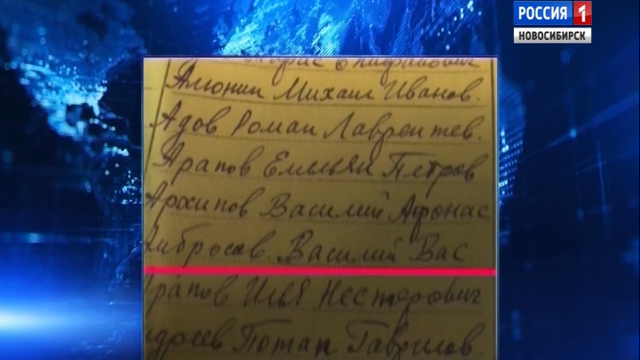 РОССИЯ 1
НОВОСИБИРСК
Алюнин Михаил Иванов.
Адов Роман Лаврентев.
Арапов Емельян Петров
Архипов Василий Афонас
Амбросов Василий Вас
Арапов Илья Нестерович
Андреев Потап Гаврилов